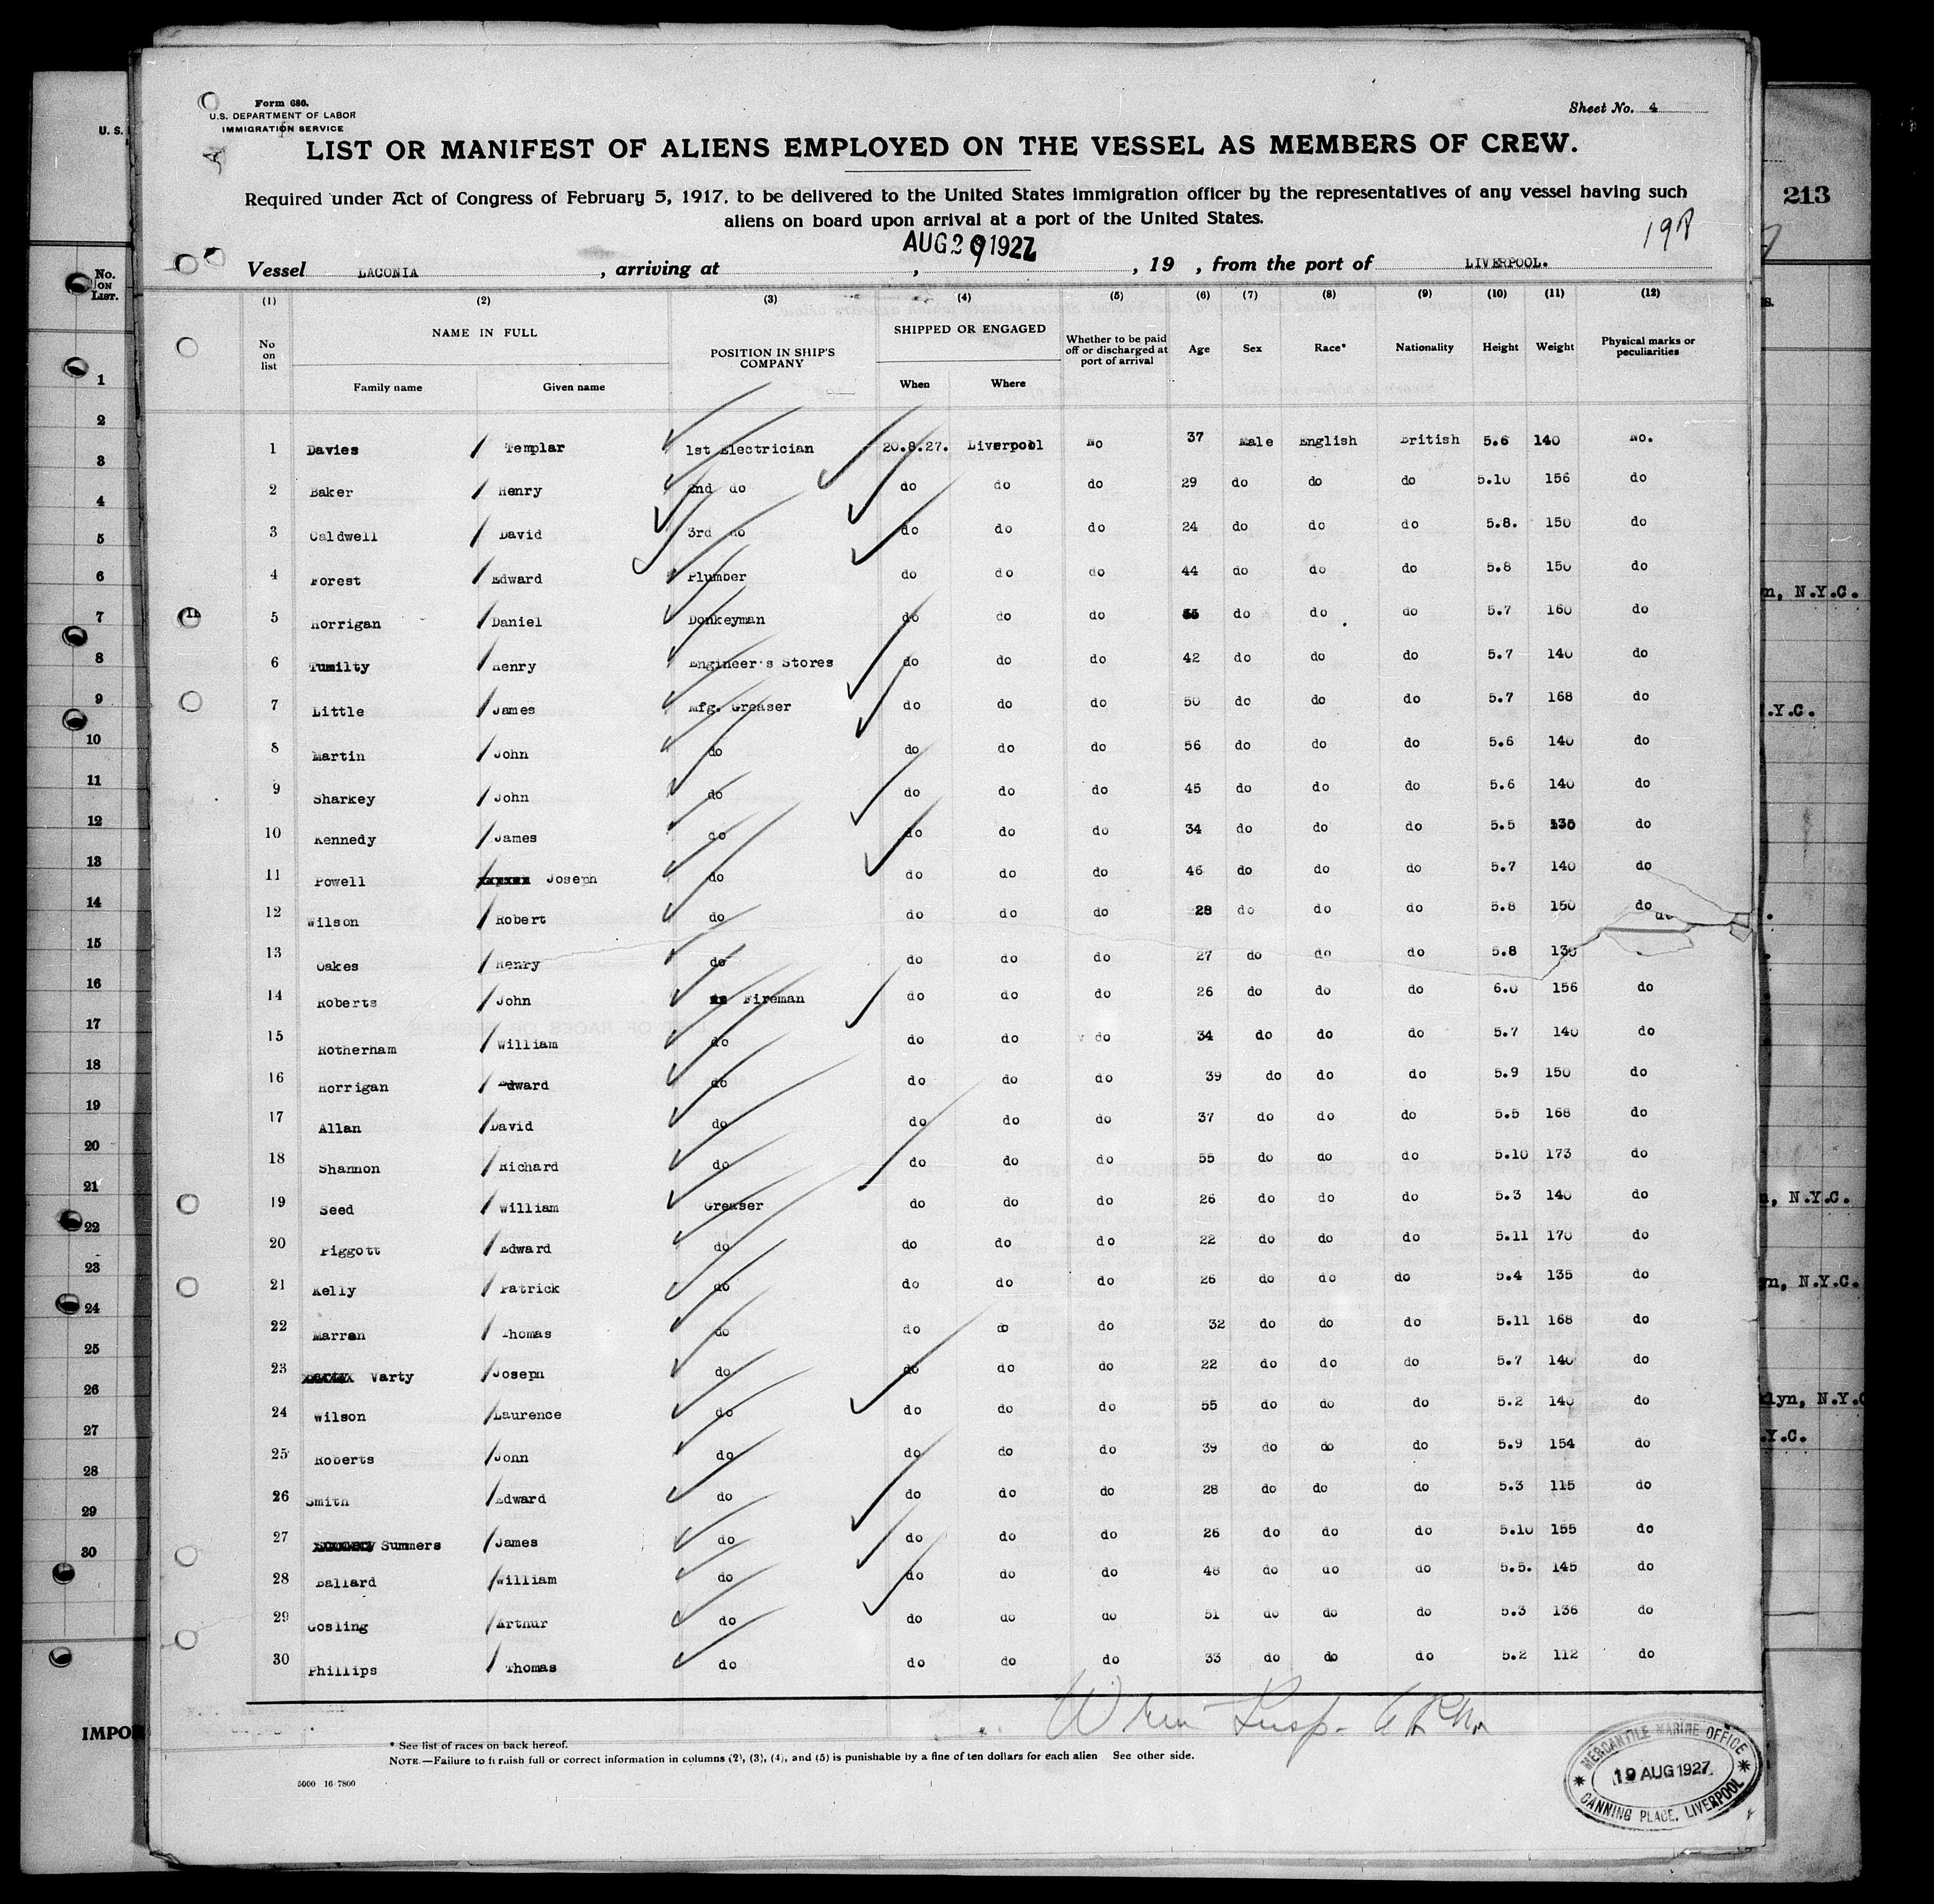 Form 680.
U.S. DEPARTMENT OF LABOR
IMMIGRATION SERVICE
Sheet No. 4
LIST OR MANIFEST OF ALIENS EMPLOYED ON THE VESSEL AS MEMBERS OF CREW.
Required under Act of Congress of February 5, 1917, to be delivered to the United States immigration officer by the representatives of any vessel having such
aliens on board upon arrival at a port of the United States.
213
AUG 29 1927
Vessel LACONIA , arriving at , , 19 , from the port of LIVERPOOL.
(1) (2) (3) (4) (5) (6) (7) (8) (9) (10) (11) (12)
No on list NAME IN FULL Family name Given name POSITION IN SHIP'S COMPANY SHIPPED OR ENGAGED When Where Whether to be paid off or discharged at port of arrival Age Sex Race* Nationality Height Weight Physical marks or peculiarities
1 Davies Templar 1st Electrician 20.8.27. Liverpool No 37 Male English British 5.6 140 No.
2 Baker Henry 2nd do do do do 29 do do do 5.10 156 do
3 Caldwell David 3rd do do do do 24 do do do 5.8. 150 do
4 Forest Edward Plumber do do do 44 do do do 5.8 150 do
5 Horrigan Daniel Donkeyman do do do do do do 5.7 160 do
6 Tumilty Henry Engineer's Stores do do do 42 do do do 5.7 140 do
7 Little James Mfg. Greaser do do do 50 do do do 5.7 168 do
8 Martin John do do do do 56 do do do 5.6 140 do
9 Sharkey John do do do do 45 do do do 5.6 140 do
10 Kennedy James do do do do 34 do do do 5.5 135 do
11 Powell Joseph do do do do 46 do do do 5.7 140 do
12 Wilson Robert do do do do 28 do do do 5.8 150 do
13 Oakes Henry do do do do 27 do do do 5.8 do
14 Roberts John Fireman do do do 26 do do do 6.0 156 do
15 Rotherham William do do do do 34 do do do 5.7 140 do
16 Horrigan Edward do do do do 39 do do do 5.9 150 do
17 Allan David do do do do 37 do do do 5.5 168 do
18 Shannon Richard do do do do 55 do do do 5.10 173 do
19 Seed William Greaser do do do 26 do do do 5.3 140 do
20 Piggott Edward do do do do 22 do do do 5.11 170 do
21 Kelly Patrick do do do do 26 do do do 5.4 135 do
22 Marren Thomas do do do do 32 do do do 5.11 168 do
23 Varty Joseph do do do do 22 do do do 5.7 140 do
24 Wilson Laurence do do do do 55 do do do 5.2 140 do
25 Roberts John do do do do 39 do do do 5.9 154 do
26 Smith Edward do do do do 28 do do do 5.3 115 do
27 Summers James do do do do 26 do do do 5.10 155 do
28 Ballard William do do do do 48 do do do 5.5. 145 do
29 Gosling Arthur do do do do 51 do do do 5.3 136 do
30 Phillips Thomas do do do do 33 do do do 5.2 112 do
* See list of races on back hereof.
NOTE.—Failure to furnish full or correct information in columns (2), (3), (4), and (5) is punishable by a fine of ten dollars for each alien See other side.
5000 16-7800
MERCANTILE MARINE OFFICE
19 AUG 1927
CANNING PLACE, LIVERPOOL
U. S.
No. ON LIST.
1
2
3
4
5
6
7
8
9
10
11
12
13
14
15
16
17
18
19
20
21
22
23
24
25
26
27
28
29
30
IMPOR
n, N.Y.C.
.Y.C.
n, N.Y.C.
yn, N.Y.C.
klyn, N.Y.C
.Y.C.